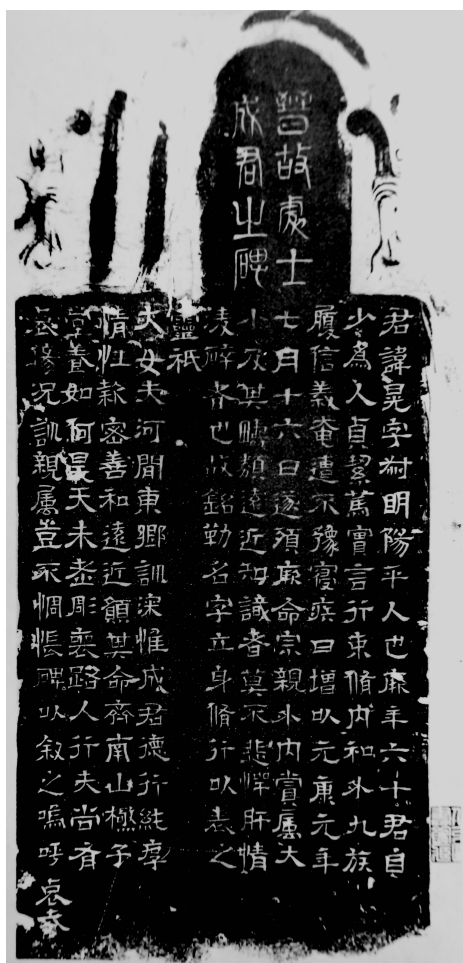 晉故處士
成君之碑
君諱晃字叔明陽平人也年六十君自
少爲人貞絜篤實言行束脩内和外九族
履信義奄遭不豫寑疾日增以元康元年
七月十六日遂殞厥命宗親外内賞屬大
小及其疇類遠近知識者莫不悲悼肝情
淩碎者也故銘勒名字立身脩行以表之
靈祇
大女夫河間東鄉訓深惟成君德行純厚
情性款密善和遠近願其命齊南山極子
堂養如何昊天未老彫喪路人行夫尚有
哀摻況訓親屬豈不惆悵碑以叙之嗚呼哀哉